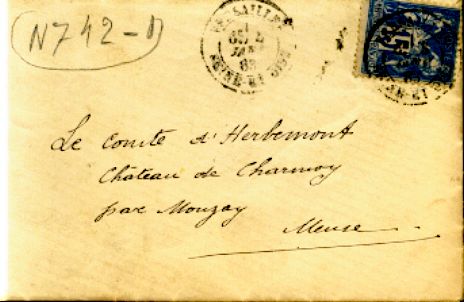 N742-D
VERSAILLES
SEINE-ET-OISE
15
Le Comte d'Herbemont
Château de Charmoy
par Mouzay
Meuse